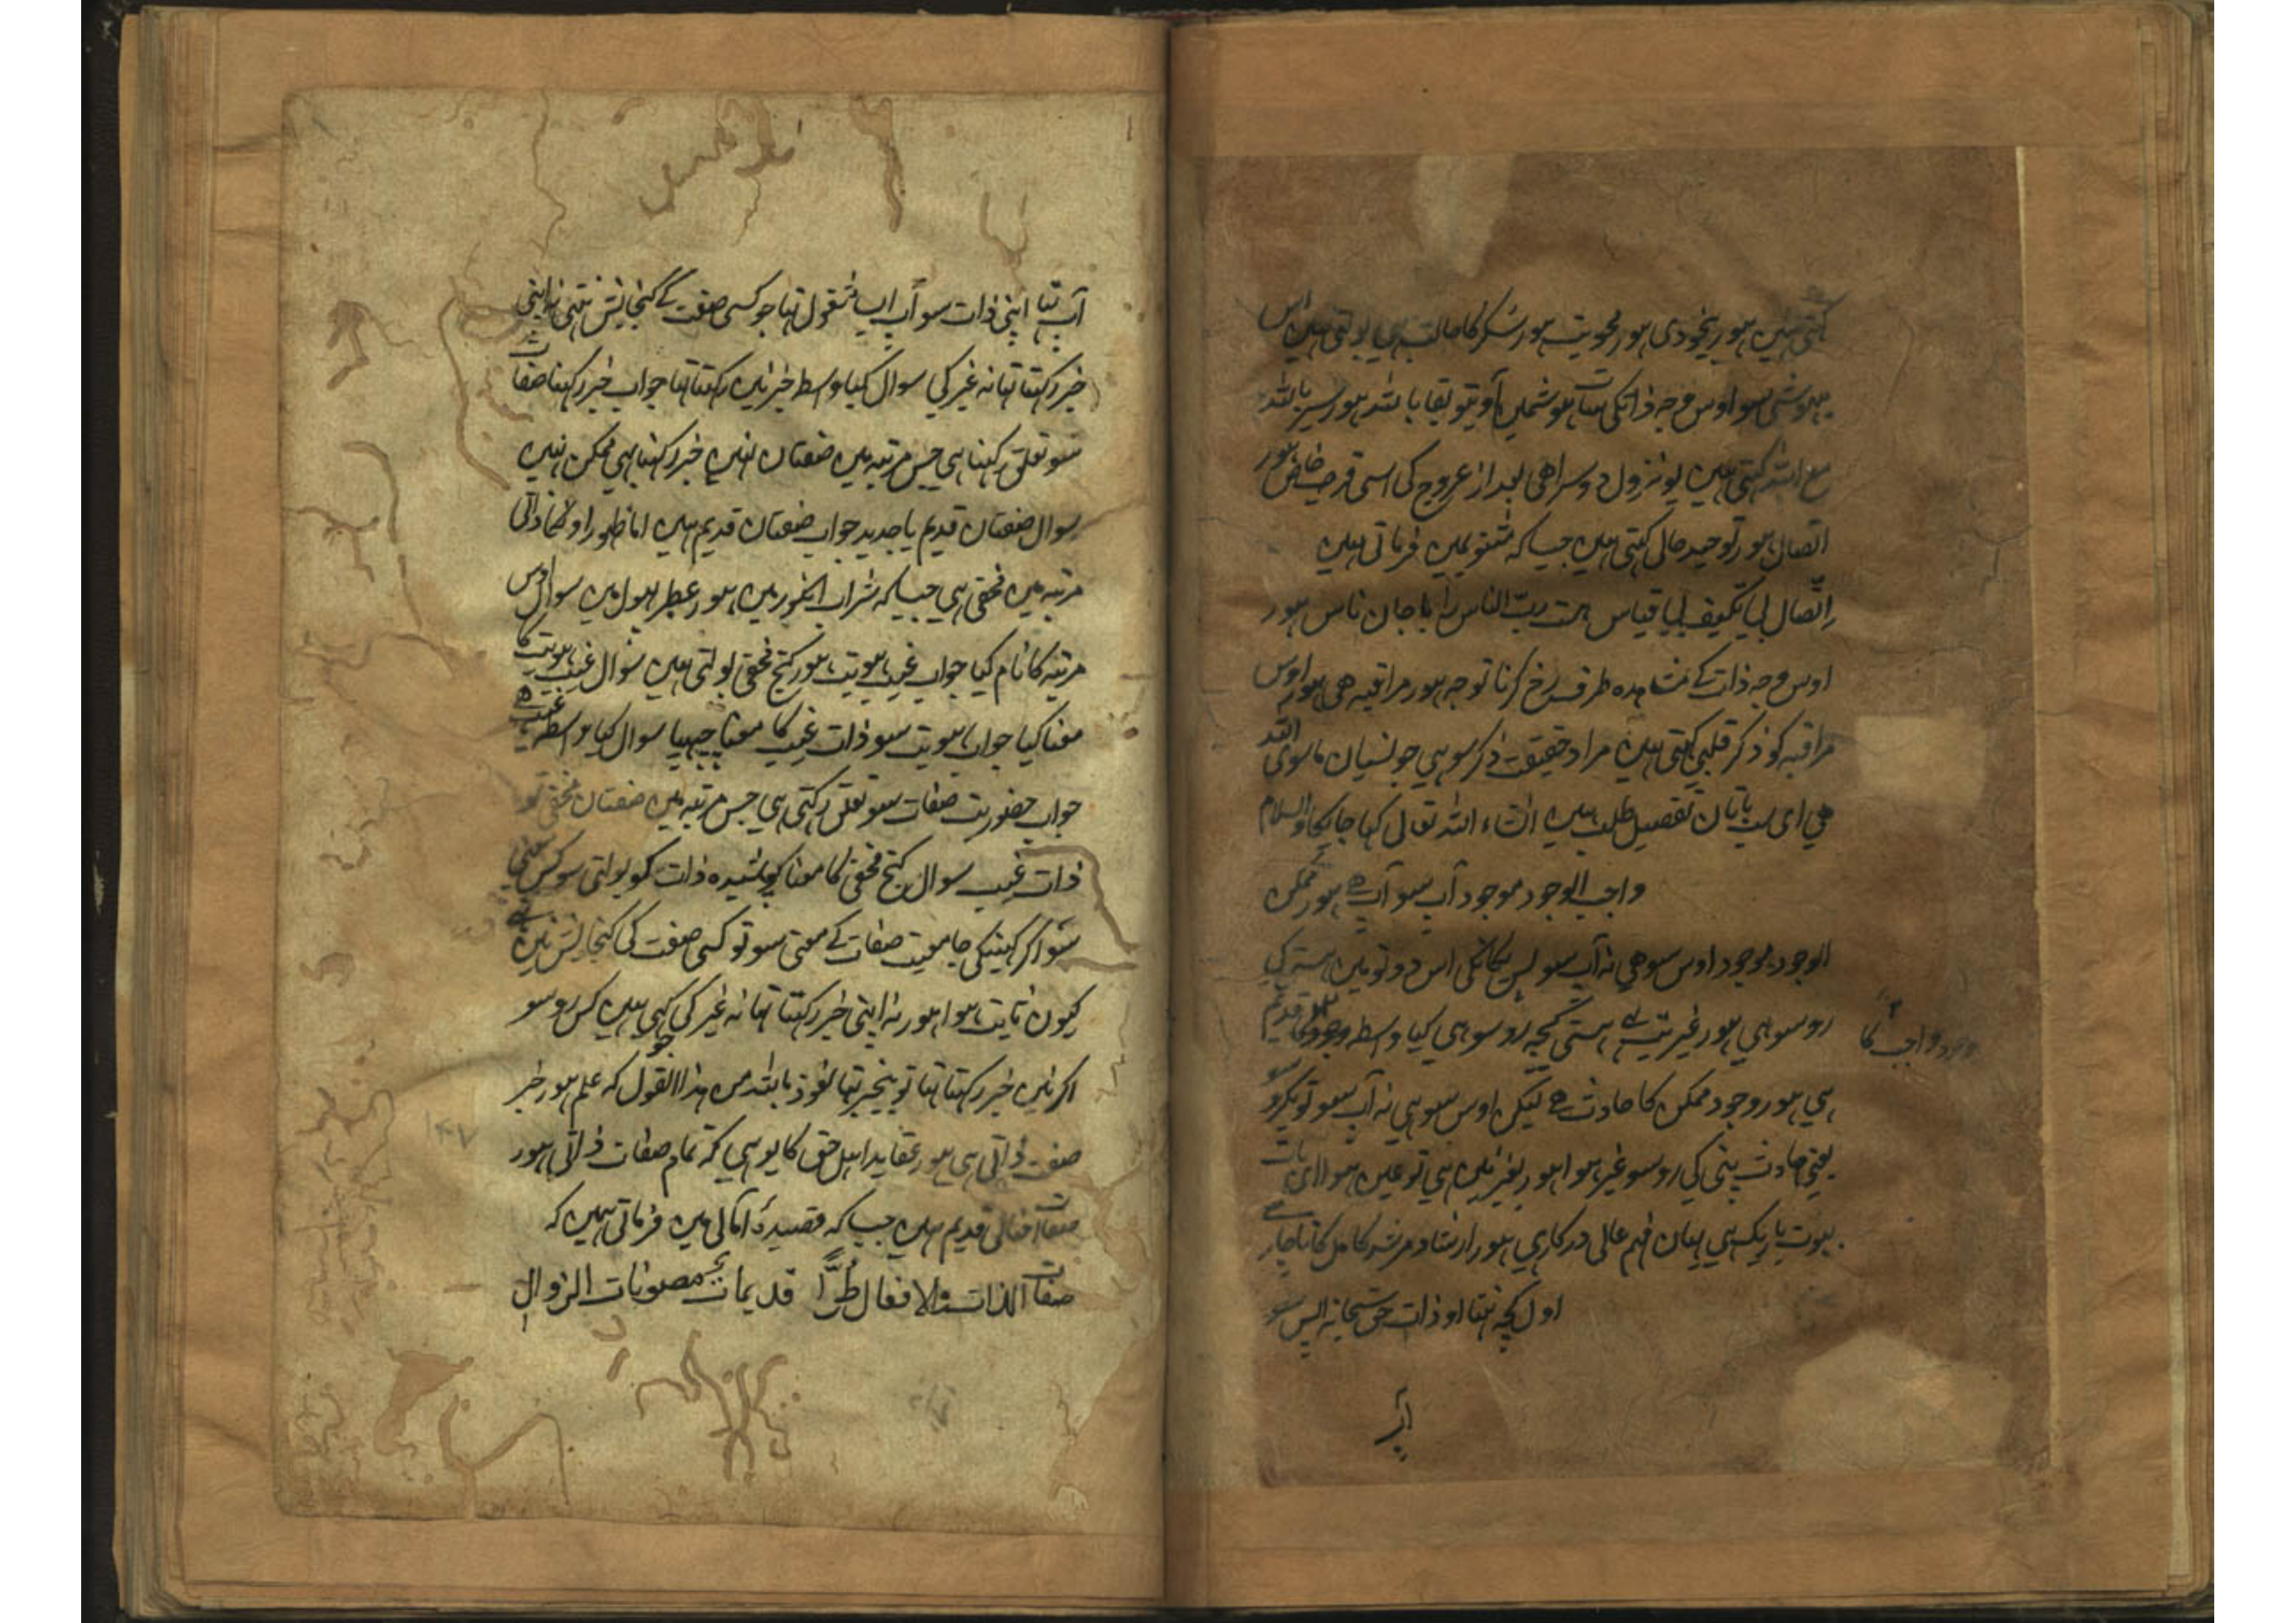 کہتی ہیں ہور بیخودی ہور محویت ہور سکر کا حالت بی بولتی ہیں اس
بیہوشی سو اوس وجہ ذاتکی سات ہوشمیں آو تو بقا باللہ ہور سیر باللہ
مع اللہ کہتی ہیں یو نزول دوسرا ھی بعد از عروج کی اسی قرب خاص ہور
اتصال ہور توحید حالی کہتی ہیں جیسا کہ مثنویمیں فرماتی ہیں
اِتّصال بی تکیف بی قیاس ہست ربّ الناس را با جان ناس ہور
اوس وجہ ذات کے مشاہدہ طرف رخ کرنا توجہ ہور مراقبہ ھی ہور اوس
مراقبہ کو ذکر قلبی کہتی ہیں مراد حقیقت ذکر سو ہی جو نسیان ماسوی اللہ
ھی ای سب باتان تفصیل طلب ہیں انشاء اللہ تعالی کہا جایگا والسلام
واجب الوجود موجود آپ سو آپ ہے ہور ممکن
الوجود موجود اوس سو ھی نہ آپ سو پس یگانگی اس دونو میں ہستی کی
رو سو ہی ہور غیریت بے ہستی کچہ رو سو ہی کیا وسطہ وجود قدیم
وجود واجب کا
ہی ہور وجود ممکن کا حادث ہے لیکن اوس سو ہی نہ آپ سو تو یکرو سو
یعنی حادث پنی کی رو سو غیر ہوا ہور بغیر نیں ہی تو عین ہوا ای بات
بہوت باریک ہی یہان فہم عالی درکار ہی ہور ارشاد مرشد کامل کا ناچار ہے
اول کچہ نتہا او ذات حق سبحانہ اپس سو
آپ
آپ تہا اپنی ذات سو آپ ایسا مشغول تہا جو کسی صفت کے گنجایش نتہی نہ اپنی
خبر رکہتا تہا نہ غیر کی سوال کیا وسطہ خبر نیں رکہتا تہا جواب خبر رکہنا صفات
سو تعلق رکہتا ہی جس مرتبہ میں صفتان نہیں خبر رکہنا بی ممکن نہیں
سوال صفتان قدیم یا جدید جواب صفتان قدیم ہیں اما ظہور اونکا ذاتی
مرتبہ میں مخفی ہی جیسا کہ شراب انگور میں ہور عطر پہول میں سوال اوس
مرتبہ کا نام کیا جواب غیب ہویت ہور گنج مخفی بولتی ہیں سوال غیب ہویت کا
معنا کیا جواب ہویت سو ذات غیب کا معنا چہپیا سوال کیا وسطہ غیب ہے
جواب حضوریت صفات سو تعلق رکہتی ہی جس مرتبہ میں صفتان مخفی تو
ذات غیب سوال گنج مخفی کا معنا پوشیدہ ذات کو بولتی سو کس
سو اگر کہینگی جامعیت صفات کے معنی سو تو کسی صفت کی گنجایش نیں
کیون ثابت ہوا ہور نہ اپنی خبر رکہتا تہا نہ غیر کی کہی ہیں کس رو سو
اگر نیں خبر رکہتا تہا تو بیخبر تہا نعوذ باللہ من ہذا القول کہ علم ہور خبر
صفت ذاتی ہی ہور عقاید اہل حق کا یو ہی کہ تمام صفات ذاتی ہور
صفات افعالی قدیم ہیں جیسا کہ قصیدۂ امالی میں فرماتی ہیں کہ
صفات الذات والافعال طُرًّا قدیمات مصونات الزوال